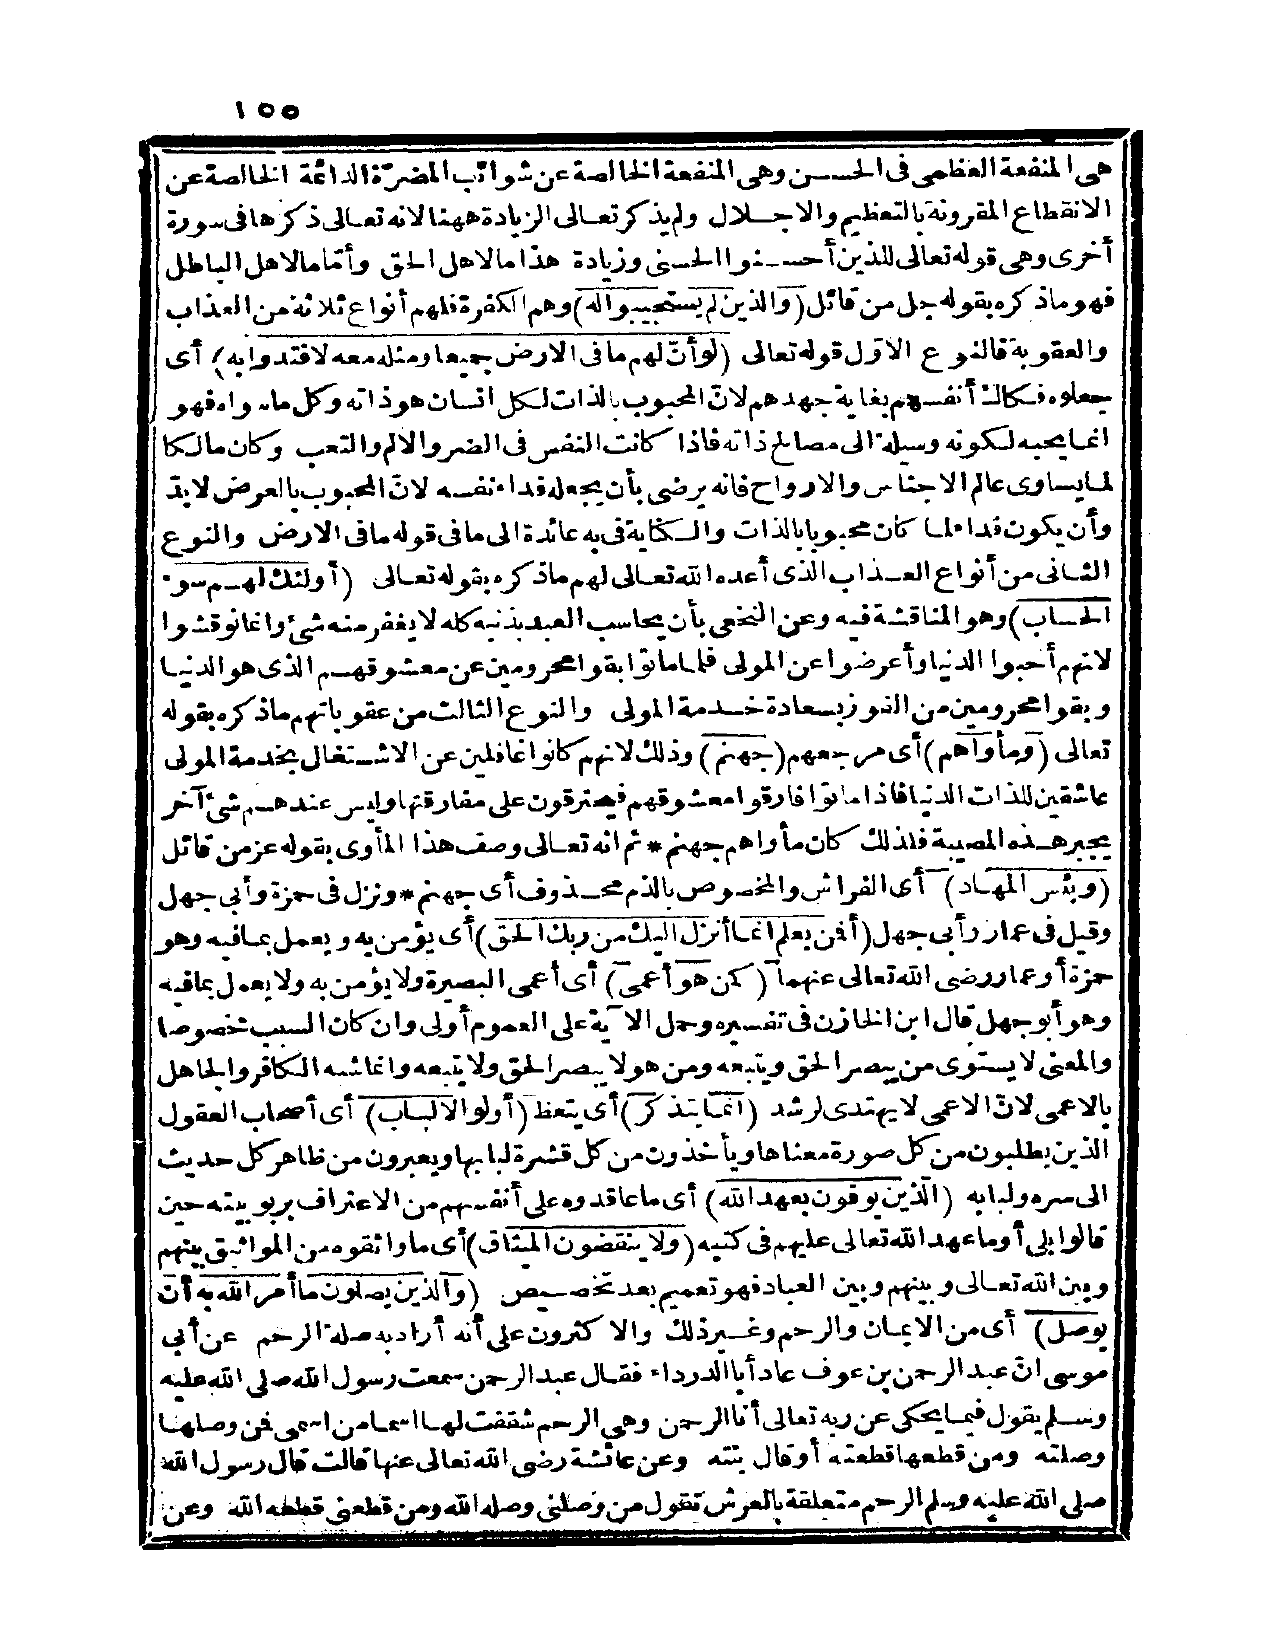 ١٥٥
هى المنفعة العظمى فى الحسن وهى المنفعة الخالصة عن شوائب المضرّة الدائمة الخالصة عن
الانقطاع المقرونة بالتعظيم والاجلال ولم يذكر تعالى الزيادة ههنا لانه تعالى ذكرها فى سورة
أخرى وهى قوله تعالى للذين أحسنوا الحسنى وزيادة هذا ما لاهل الحق وأمّا ما لاهل الباطل
فهو ماذكره بقوله جل من قائل (والذين لم يستجيبوا له) وهم الكفرة فلهم أنواع ثلاثة من العذاب
والعقوبة فالنوع الاوّل قوله تعالى (لو أنّ لهم ما فى الارض جميعا ومثله معه لافتدوا به) أى
جعلوه فكاك أنفسهم بغاية جهدهم لانّ المحبوب بالذات لكل انسان هو ذاته وكل ما سواه فهو
انما يحبه لكونه وسيلة الى مصالح ذاته فاذا كانت النفس فى الضر والالم والتعب وكان مالكا
لما يساوى عالم الاجناس والارواح فانه يرضى بأن يجعله فداء نفسه لانّ المحبوب بالعرض لابدّ
وأن يكون فداء لما كان محبوبا بالذات والكناية فى به عائدة الى ما فى قوله ما فى الارض والنوع
الثانى من أنواع العذاب الذى أعده الله تعالى لهم ماذكره بقوله تعالى (أولئك لهم سوء
الحساب) وهو المناقشة فيه وعن النخعى بأن يحاسب العبد بذنبه كله لا يغفر منه شئ وانما نوقشوا
لانهم أحبوا الدنيا وأعرضوا عن المولى فلما ماتوا بقوا محرومين عن معشوقهم الذى هو الدنيا
وبقوا محرومين من الفوز بسعادة خدمة المولى والنوع الثالث من عقوباتهم ماذكره بقوله
تعالى (ومأواهم) أى مرجعهم (جهنم) وذلك لانهم كانوا غافلين عن الاشتغال بخدمة المولى
عاشقين للذات الدنيا فاذا ماتوا فارقوا معشوقهم فيحترقون على مفارقتها وليس عندهم شئ آخر
يجبر هذه المصيبة فلذلك كان مأواهم جهنم * ثم انه تعالى وصف هذا المأوى بقوله عز من قائل
(وبئس المهاد) أى الفراش والمخصوص بالذم محذوف أى جهنم * ونزل فى حمزة وأبى جهل
وقيل فى عمار وأبى جهل (أفمن يعلم انما أنزل اليك من ربك الحق) أى يؤمن به ويعمل بما فيه وهو
حمزة أو عمار رضى الله تعالى عنهما (كمن هو أعمى) أى أعمى البصيرة ولا يؤمن به ولا يعمل بما فيه
وهو أبو جهل قال ابن الخازن فى تفسيره وحمل الآية على العموم أولى وان كان السبب مخصوصا
والمعنى لا يستوى من يبصر الحق ويتبعه ومن هو لا يبصر الحق ولا يتبعه وانما شبه الكافر والجاهل
بالاعمى لانّ الاعمى لا يهتدى لرشد (انما يتذكر) أى يتعظ (أولوا الالباب) أى أصحاب العقول
الذين يطلبون من كل صورة معناها ويأخذون من كل قشرة لبابها ويعبرون من ظاهر كل حديث
الى سره ولبابه (الذين يوفون بعهد الله) أى ما عاقدوه على أنفسهم من الاعتراف بربوبيته حين
قالوا بلى أو ما عهد الله تعالى عليهم فى كتبه (ولا ينقضون الميثاق) أى ما واثقوه من المواثيق بينهم
وبين الله تعالى وبينهم وبين العباد فهو تعميم بعد تخصيص (والذين يصلون ما أمر الله به أن
يوصل) أى من الايمان والرحم وغير ذلك والاكثرون على أنه أراد به صلة الرحم عن أبى
موسى انّ عبد الرحمن بن عوف عاد أبا الدرداء فقال عبد الرحمن سمعت رسول الله صلى الله عليه
وسلم يقول فيما يحكى عن ربه تعالى أنا الرحمن وهى الرحم شققت لها اسما من اسمى فمن وصلها
وصلته ومن قطعها قطعته أو قال بتته وعن عائشة رضى الله تعالى عنها قالت قال رسول الله
صلى الله عليه وسلم الرحم متعلقة بالعرش تقول من وصلنى وصله الله ومن قطعنى قطعه الله وعن